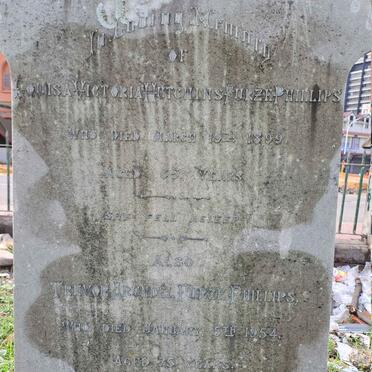 In Loving Memory
OF
LOUISA VICTORIA HUTCHINS FURZE PHILLIPS
WHO DIED MARCH 19TH 1899
AGED 65 YEARS
SHE FELL ASLEEP
ALSO
FURZE PHILLIPS,
WHO DIED JANUARY 5TH 1954,
AGED YEARS.